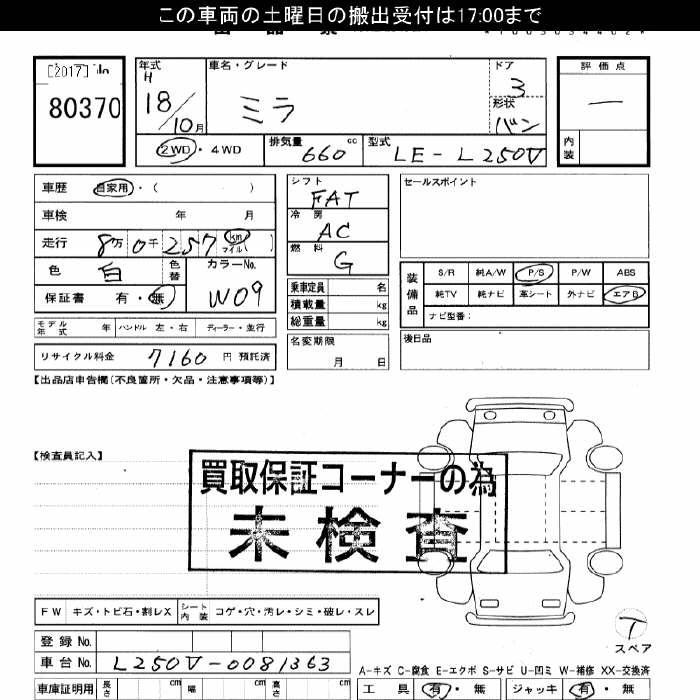 この車両の土曜日の搬出受付は17:00まで
[2017]
80370
年式 H 18/10月
車名・グレード ミラ
ドア 3
形状 バン
評価点 ー
内装
2WD・4WD
排気量 660 cc
型式 LE-L250V
車歴 自家用・( )
車検 年 月
走行 8万0千257 km マイル( )
色 白 色替
カラーNo. W09
保証書 有・無
モデル年式 年 ハンドル 左・右 ディーラー・並行
リサイクル料金 7160 円 預託済
シフト FAT
冷房 AC
燃料 G
乗車定員 名
積載量 kg
総重量 kg
名変期限 月 日
セールスポイント
装備品 S/R 純A/W P/S P/W ABS
純TV 純ナビ 革シート 外ナビ エアB
ナビ型番:
後日品
【出品店申告欄(不良箇所・欠品・注意事項等)】
【検査員記入】
買取保証コーナーの為
未検査
FW キズ・トビ石・割レX シート内装 コゲ・穴・汚レ・シミ・破レ・スレ
登録No.
車台No. L250V-0081363
車庫証明用 長さ cm 幅 cm 高さ cm
T
スペア
A-キズ C-腐食 E-エクボ S-サビ U-凹ミ W-補修 XX-交換済
工具 有・無 ジャッキ 有・無